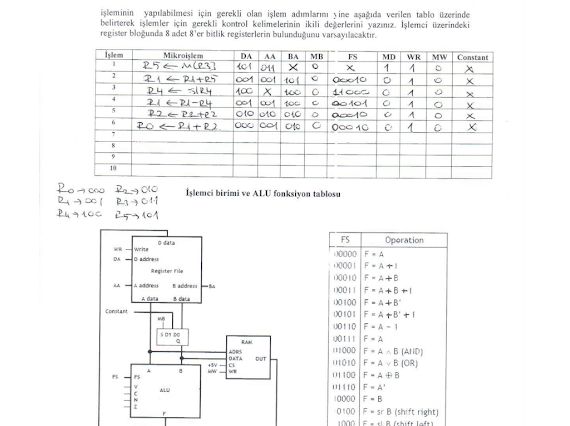 işleminin yapılabilmesi için gerekli olan işlem adımlarını yine aşağıda verilen tablo üzerinde
belirterek işlemler için gerekli kontrol kelimelerinin ikili değerlerini yazınız. İşlemci üzerindeki
register bloğunda 8 adet 8'er bitlik registerlerin bulunduğunu varsayılacaktır.
İşlem Mikroişlem DA AA BA MB FS MD WR MW Constant
1 R5 ← M[R3] 101 011 X 0 X 1 1 0 X
2 R1 ← R1+R5 001 001 101 0 00010 0 1 0 X
3 R4 ← slR4 100 X 100 0 11000 0 1 0 X
4 R1 ← R1-R4 001 001 100 0 00101 0 1 0 X
5 R2 ← R2+R2 010 010 010 0 00010 0 1 0 X
6 R0 ← R1+R2 000 001 010 0 00010 0 1 0 X
7
8
9
10
R0→000 R2→010
R1→001 R3→011
R4→100 R5→101
İşlemci birimi ve ALU fonksiyon tablosu
D data
WR Write
DA D address
Register File
AA A address B address BA
A data B data
Constant
MB
S D1 D0
Q
RAM
ADRS
DATA OUT
+5V CS
MW WR
A B
FS FS
V
C
N
Z
ALU
F
FS Operation
00000 F = A
00001 F = A + 1
00010 F = A + B
00011 F = A + B + 1
00100 F = A + B'
00101 F = A + B' + 1
00110 F = A - 1
00111 F = A
01000 F = A ∧ B (AND)
01010 F = A ∨ B (OR)
01100 F = A ⊕ B
01110 F = A'
10000 F = B
10100 F = sr B (shift right)
11000 F = sl B (shift left)